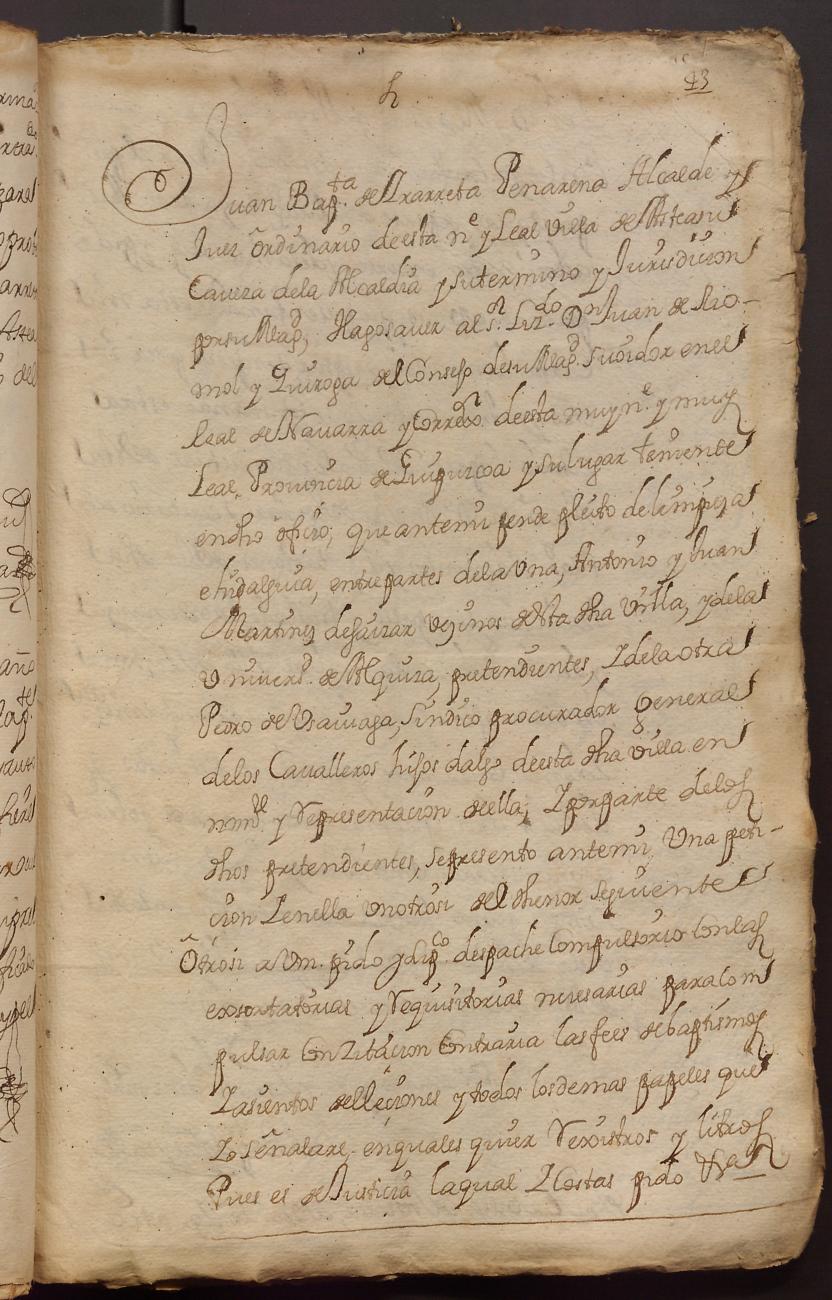 43
Juan Bap.ta de Yrarreta Penarena Alcalde y
Juez ordinario de esta n.e y Leal Villa de Asteasu
Caveza dela Alcaldia y su termino y Jurisdicion
por su Mag.d, Hago saver al s.r Liz.do D.n Juan de Rio-
mol y Quiroga del Consejo de su Mag.d su oidor en el
Real de Navarra y Corre.or de esta muy n.e y muy
Leal Provincia de Guipuzcoa y su lugar teniente
en dho oficio; que ante mi pende pleito de limpieza
e hidalguia, entre partes dela Una, Antonio y Juan
Martinez de vezinos de esta dha Villa, y dela
Univers.d de Alquiza, pretendientes, Y dela otra
Pedro de Usaviaga, sindico procurador general
delos Cavalleros hijos dalgo de esta dha villa en
nom.e y Representacion de ella; Y por parte delos
dhos pretendientes, se presento ante mi Una peti-
cion Y en ella un otrosi del thenor siguiente
Otrosi a Vm. pido y sup.co despache Compulsorio con las
exsortatorias y Requisitorias necesarias para com
pulsar Con Zitacion Contraria las fees de baptismos
Y asientos de elleciones y todos los demas papeles que
Yo señalare en quales quier Rexistros y libros
Pues es de Justicia la qual Y Costas pido &ra